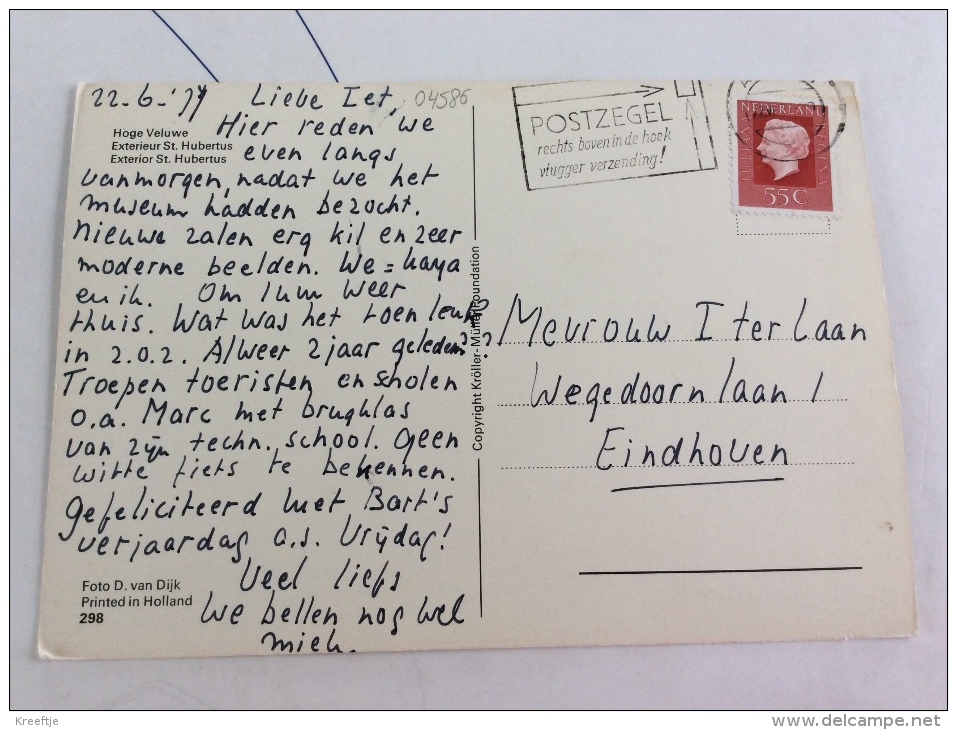 22-6-'77 Lieve Iet,
04586
Hoge Veluwe
Exterieur St. Hubertus
Exterior St. Hubertus
Hier reden we
even langs
vanmorgen, nadat we het
museum hadden bezocht.
Nieuwe zalen erg kil en zeer
moderne beelden. We = kaya
en ik. Om 1 uur weer
thuis. Wat was het toen leuk
in 2.0.2. Alweer 2 jaar geleden??
Troepen toeristen en scholen
o.a. Marc met brugklas
van zijn techn. school. Geen
witte fiets te bekennen.
Gefeliciteerd met Bart's
verjaardag a.s. Vrijdag!
Veel liefs
We bellen nog wel
miek.
Foto D. van Dijk
Printed in Holland
298
Copyright Kröller-Müller Foundation
POSTZEGEL
rechts boven in de hoek
vlugger verzending!
NEDERLAND
JULIANA REGINA
55 C
Mevrouw I ter Laan
Wegedoornlaan 1
Eindhoven
Kreeftje
www.delcampe.net